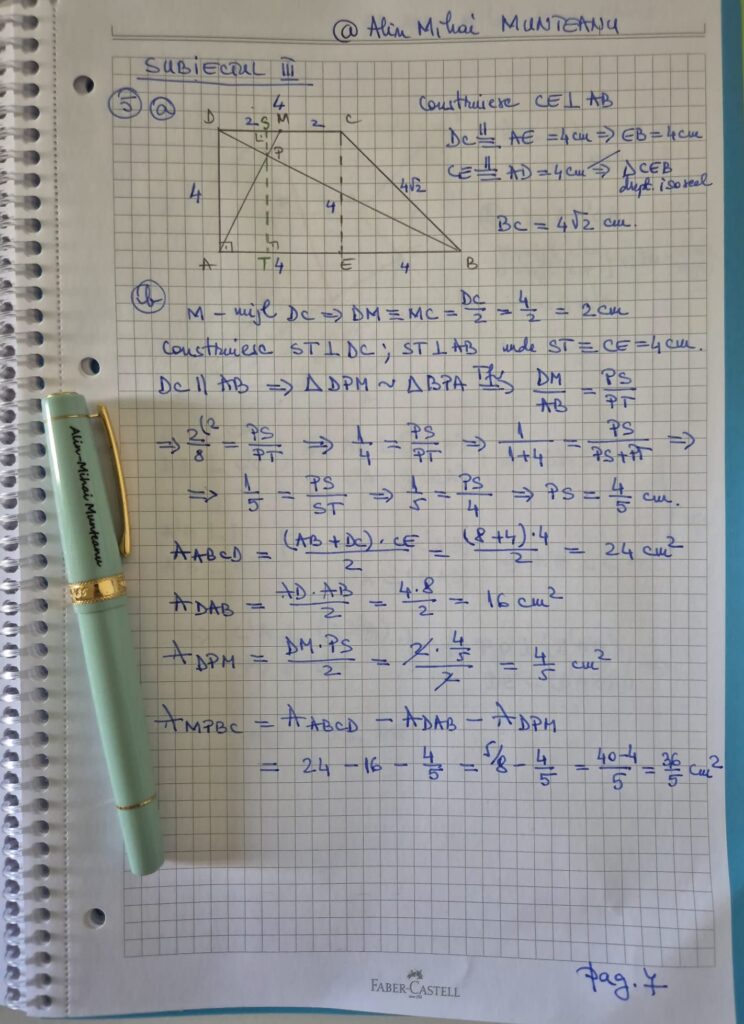 @ Alin Mihai MUNTEANU
SUBIECTUL III
5 a
D 2 S 4 M 2 C
P
4 4 4√2
A T 4 E 4 B
Construiesc CE⊥AB
DC ∥= AE = 4cm ⇒ EB = 4cm
CE ∥= AD = 4cm ⇒ △CEB
drept. isoscel
BC = 4√2 cm.
b
M - mijl DC ⇒ DM ≡ MC = DC/2 = 4/2 = 2cm
Construiesc ST⊥DC ; ST⊥AB unde ST ≡ CE = 4cm.
DC ∥ AB ⇒ △DPM ~ △BPA ⇒ DM/AB = PS/PT
⇒ 2/8 (2 = PS/PT ⇒ 1/4 = PS/PT ⇒ 1/1+4 = PS/PS+PT ⇒
⇒ 1/5 = PS/ST ⇒ 1/5 = PS/4 ⇒ PS = 4/5 cm.
A ABCD = (AB + DC) · CE/2 = (8+4)·4/2 = 24 cm²
A DAB = AD · AB/2 = 4·8/2 = 16 cm²
A DPM = DM · PS/2 = 2 · 4/5/2 = 4/5 cm²
A MPBC = A ABCD − A DAB − A DPM
= 24 − 16 − 4/5 = 5/8 − 4/5 = 40−4/5 = 36/5 cm²
Alin-Mihai Munteanu
FABER-CASTELL
pag. 7